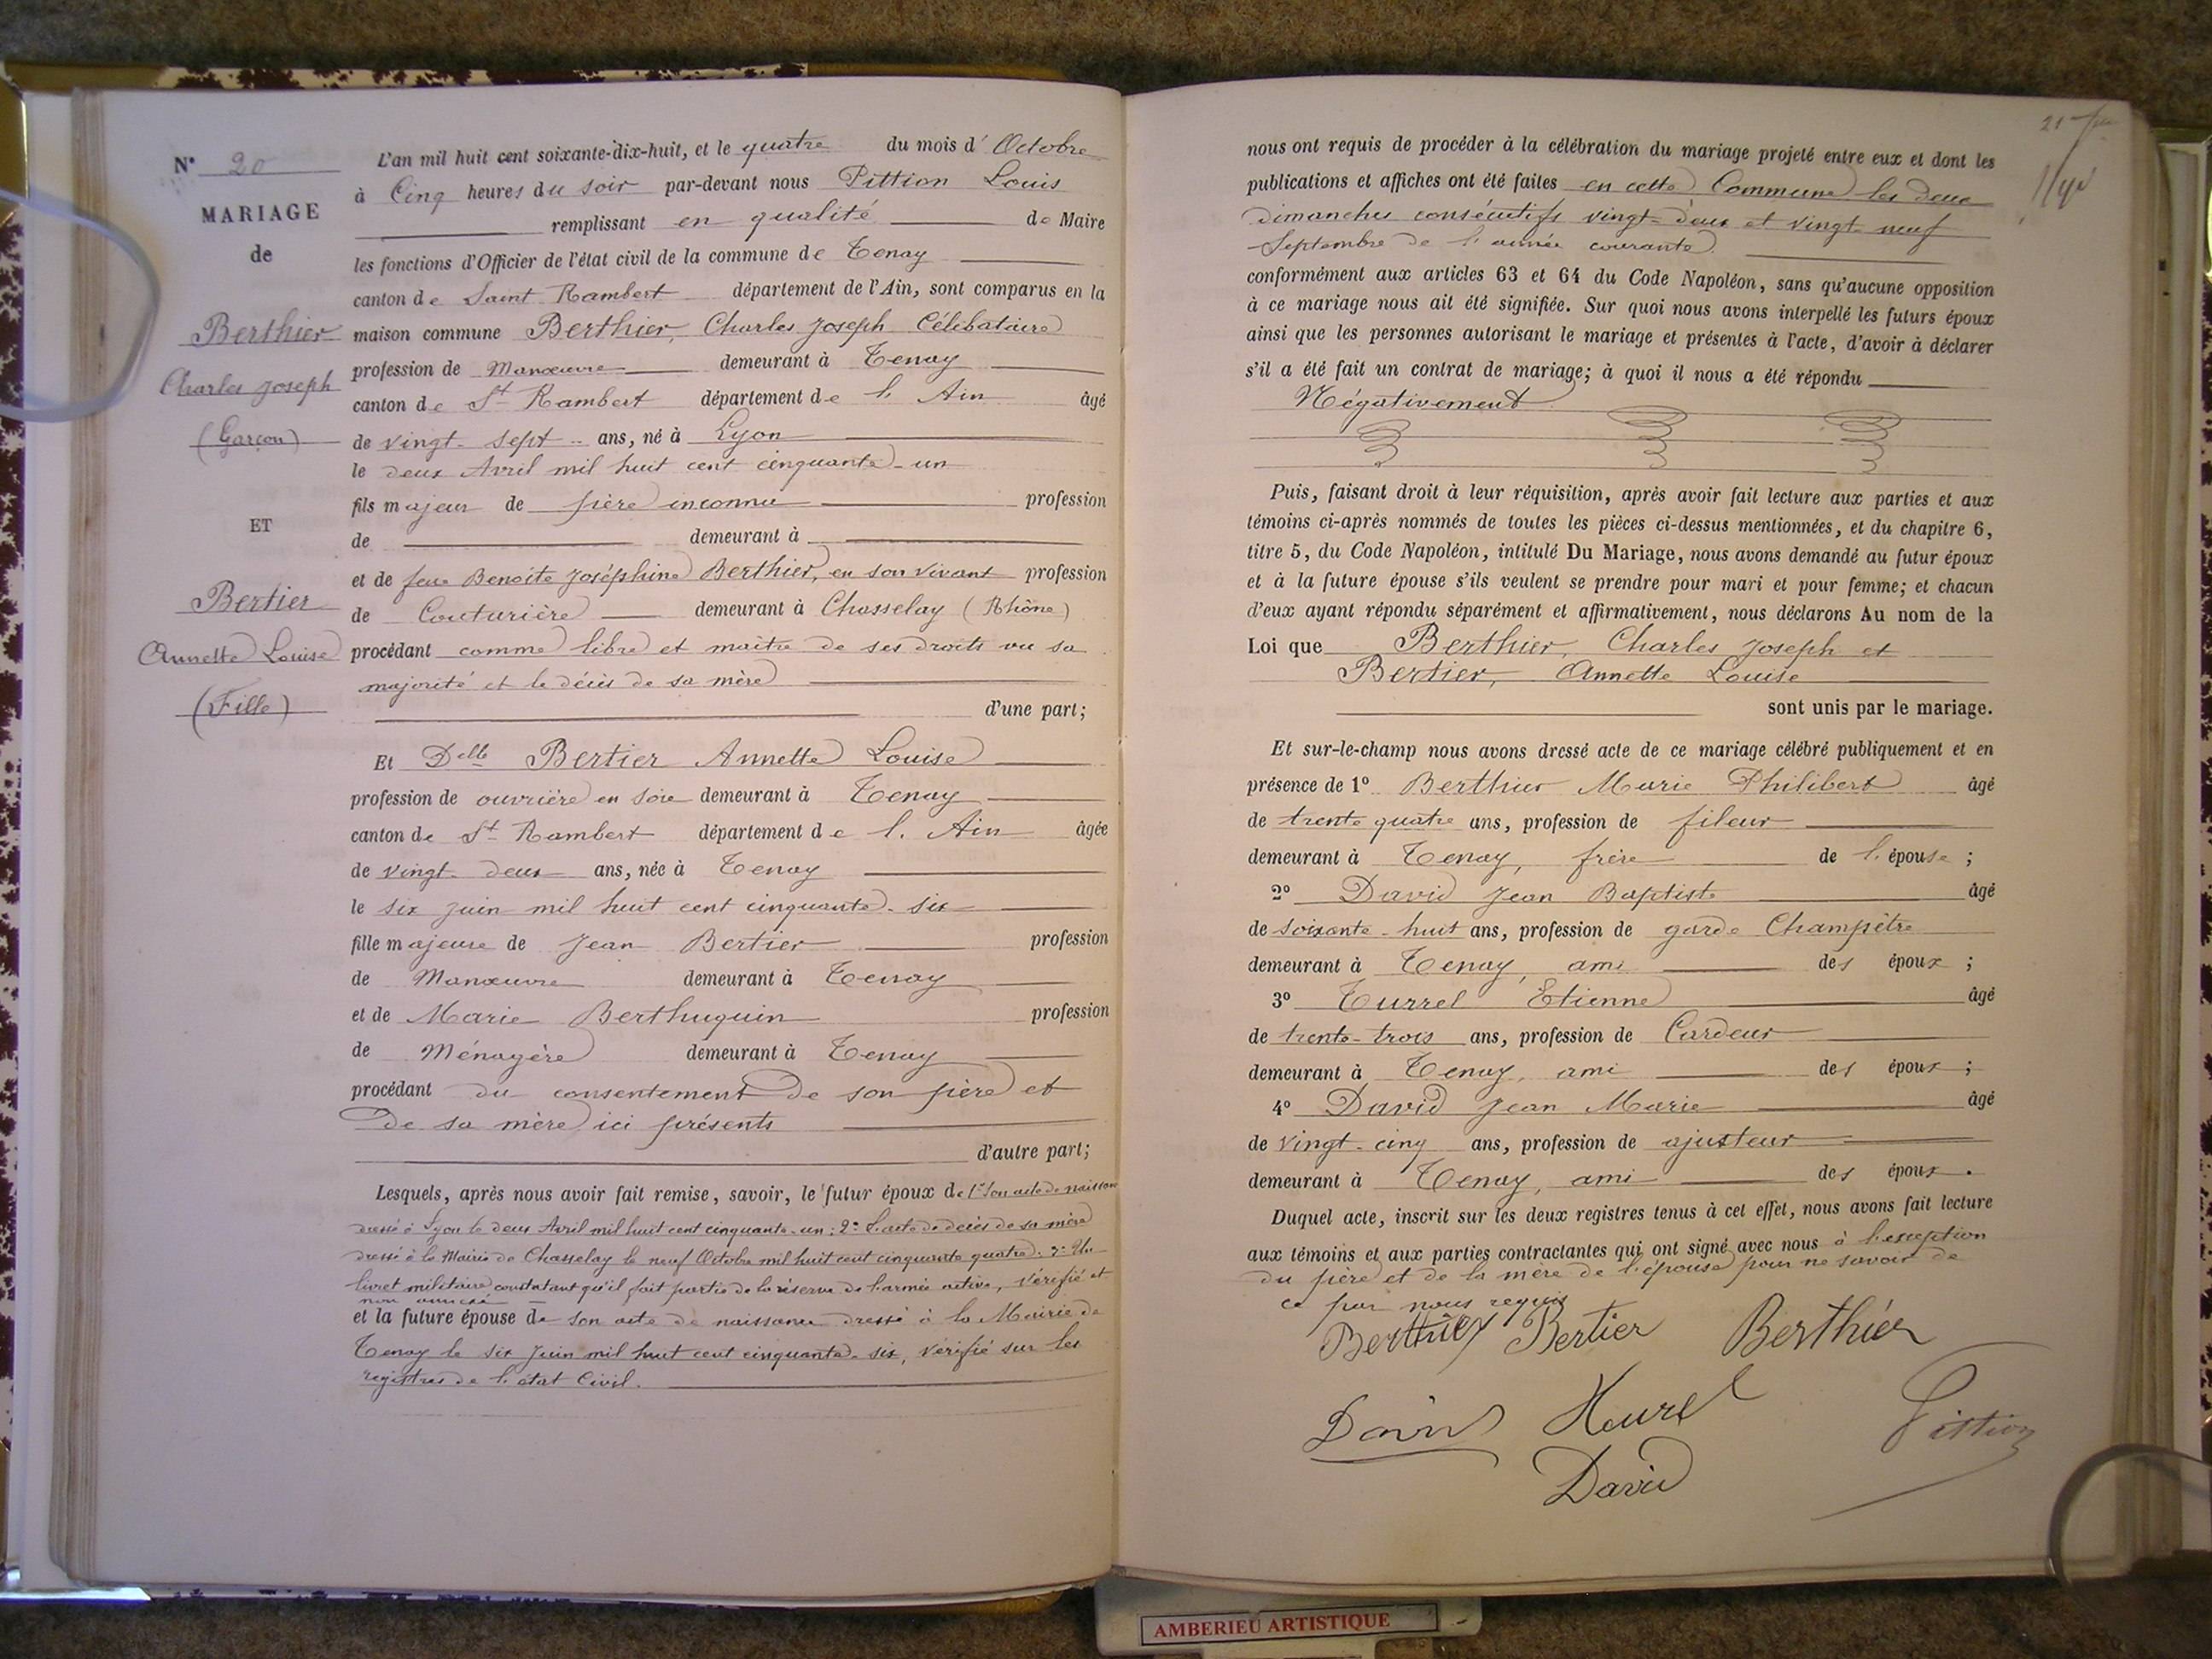 N° 20
MARIAGE
de
Berthier
Charles Joseph
(Garçon)
ET
Bertier
Annette Louise
(Fille)
L'an mil huit cent soixante-dix-huit, et le quatre du mois d'Octobre
à Cinq heures du soir par-devant nous Pittion Louis
remplissant en qualité de Maire
les fonctions d'Officier de l'état civil de la commune de Tenay
canton de Saint Rambert département de l'Ain, sont comparus en la
maison commune Berthier, Charles Joseph Célibataire
profession de Manœuvre demeurant à Tenay
canton de St Rambert département de l'Ain âgé
de vingt-sept ans, né à Lyon
le deux Avril mil huit cent cinquante-un
fils majeur de père inconnu profession
de demeurant à
et de feue Benoite Joséphine Berthier, en son vivant profession
de Couturière demeurant à Chasselay (Rhône)
procédant comme libre et maître de ses droits vu sa
majorité et le décès de sa mère
d'une part;
Et Delle Bertier Annette Louise
profession de ouvrière en soie demeurant à Tenay
canton de St Rambert département de l'Ain âgée
de vingt-deux ans, née à Tenay
le six juin mil huit cent cinquante-six
fille majeure de Jean Bertier profession
de Manœuvre demeurant à Tenay
et de Marie Berthuguin profession
de Ménagère demeurant à Tenay
procédant du consentement de son père et
de sa mère ici présents
d'autre part;
Lesquels, après nous avoir fait remise, savoir, le futur époux de 1° son acte de naissance
dressé à Lyon le deux Avril mil huit cent cinquante-un; 2° L'acte de décès de sa mère
dressé à la Mairie de Chasselay le neuf Octobre mil huit cent cinquante quatre. 3° Un
livret militaire constatant qu'il fait partie de la réserve de l'armée active, vérifié et
non annexé
et la future épouse de son acte de naissance dressé à la Mairie de
Tenay le six Juin mil huit cent cinquante-six, vérifié sur les
registres de l'état Civil.
nous ont requis de procéder à la célébration du mariage projeté entre eux et dont les
publications et affiches ont été faites en cette Commune les deux
dimanches consécutifs vingt-deux et vingt neuf
Septembre de l'année courante.
conformément aux articles 63 et 64 du Code Napoléon, sans qu'aucune opposition
à ce mariage nous ait été signifiée. Sur quoi nous avons interpellé les futurs époux
ainsi que les personnes autorisant le mariage et présentes à l'acte, d'avoir à déclarer
s'il a été fait un contrat de mariage; à quoi il nous a été répondu
Négativement
Puis, faisant droit à leur réquisition, après avoir fait lecture aux parties et aux
témoins ci-après nommés de toutes les pièces ci-dessus mentionnées, et du chapitre 6,
titre 5, du Code Napoléon, intitulé Du Mariage, nous avons demandé au futur époux
et à la future épouse s'ils veulent se prendre pour mari et pour femme; et chacun
d'eux ayant répondu séparément et affirmativement, nous déclarons Au nom de la
Loi que Berthier, Charles Joseph et
Bertier, Annette Louise
sont unis par le mariage.
Et sur-le-champ nous avons dressé acte de ce mariage célébré publiquement et en
présence de 1° Berthier Marie Philibert âgé
de trente quatre ans, profession de fileur
demeurant à Tenay, frère de l'épouse;
2° David Jean Baptiste âgé
de soixante-huit ans, profession de garde Champêtre
demeurant à Tenay, ami des époux;
3° Turrel Etienne âgé
de trente-trois ans, profession de Cardeur
demeurant à Tenay, ami des époux;
4° David Jean Marie âgé
de vingt-cinq ans, profession de ajusteur
demeurant à Tenay, ami des époux.
Duquel acte, inscrit sur les deux registres tenus à cet effet, nous avons fait lecture
aux témoins et aux parties contractantes qui ont signé avec nous à l'exception
du père et de la mère de l'épouse pour ne savoir de
ce par nous requis
Berthier Bertier Berthier
David Pittion
David
AMBERIEU ARTISTIQUE